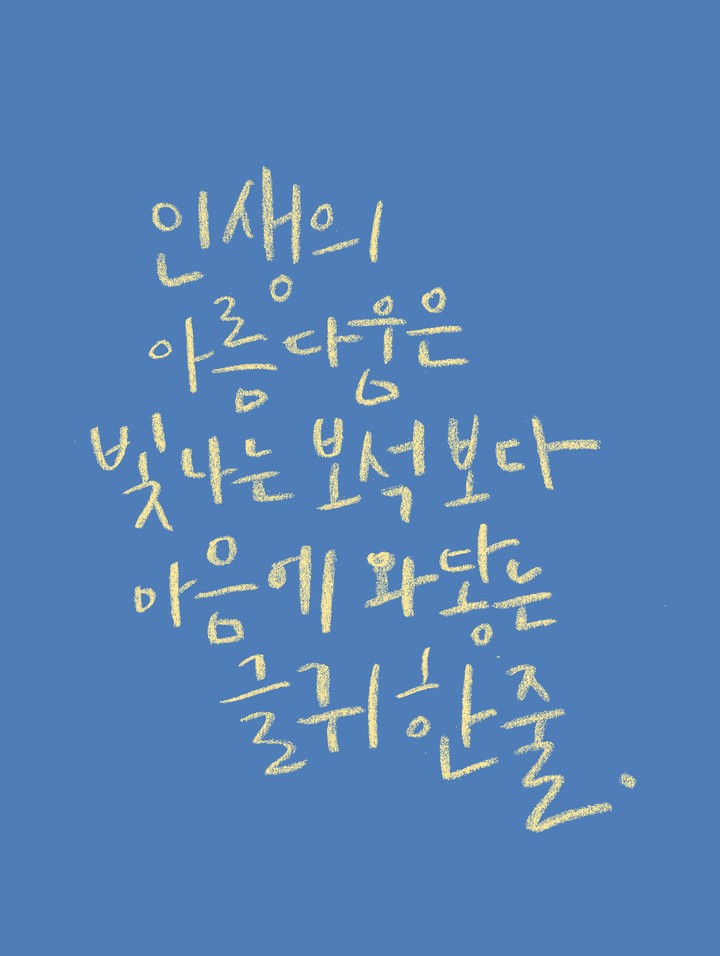 인생의
아름다움은
빛나는 보석보다
마음에 와닿는
글귀 한 줄.